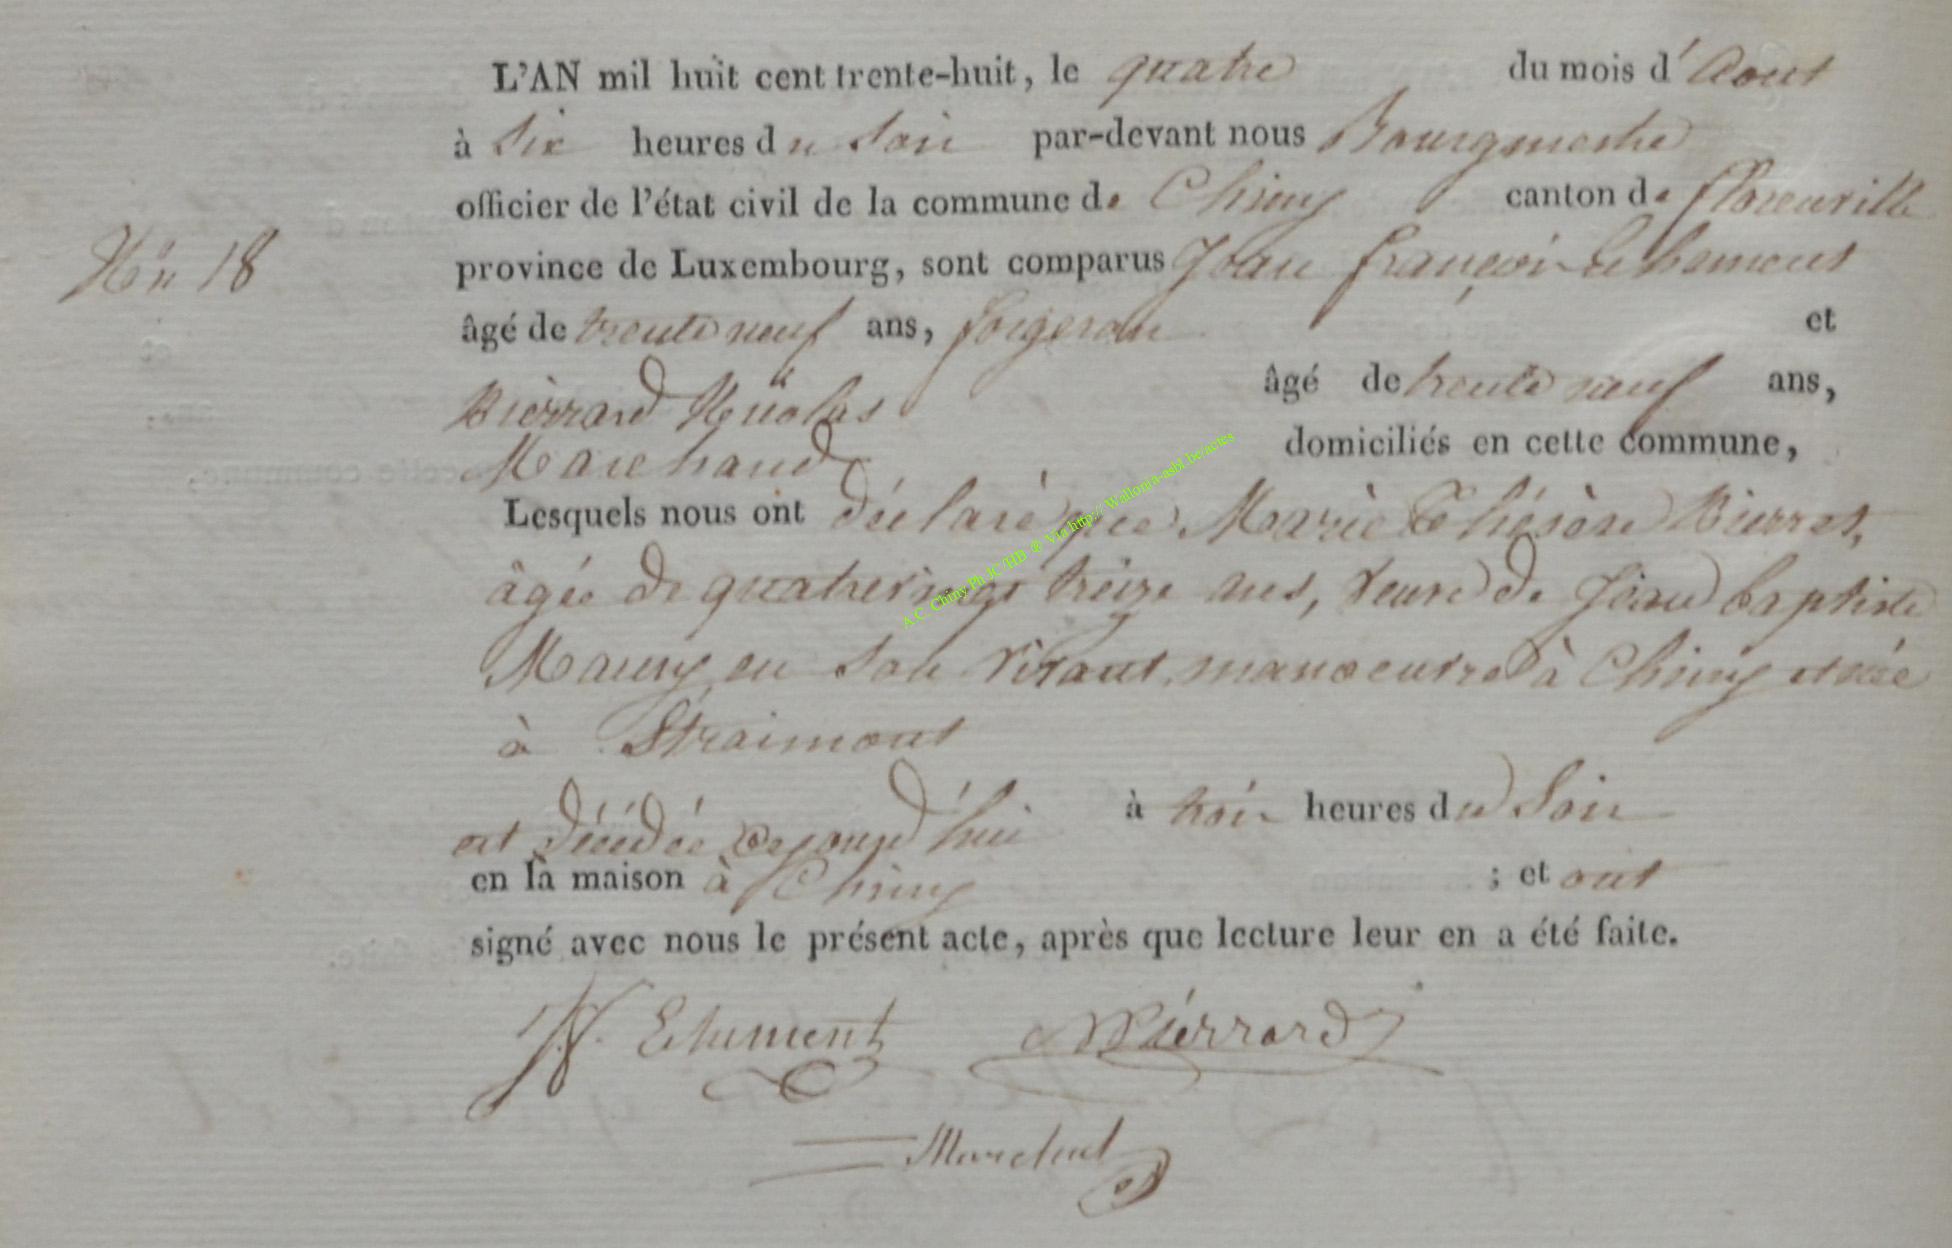 L'AN mil huit cent trente-huit, le quatre du mois d'Aout
à Six heures du Soir par-devant nous Bourgmestre
officier de l'état civil de la commune de Chiny canton de florenville
N° 18
province de Luxembourg, sont comparus Jean françois
âgé de trente neuf ans, forgeron et
Pierrard Nicolas âgé de trente neuf ans,
Marchand domiciliés en cette commune,
Lesquels nous ont déclaré que Marie Thérèse Pierret,
âgée de quatrevingt treize ans, veuve de Jean baptiste
Mauny en son vivant manoeuvre à Chiny et née
à Straimont
est décédée cejourd'hui à trois heures du Soir
en la maison à Chiny ; et ont
signé avec nous le présent acte, après que lecture leur en a été faite.
Pierrard
A.C. Chiny Ph JC-HB @ Via http:// Wallonia-asbl.be/actes